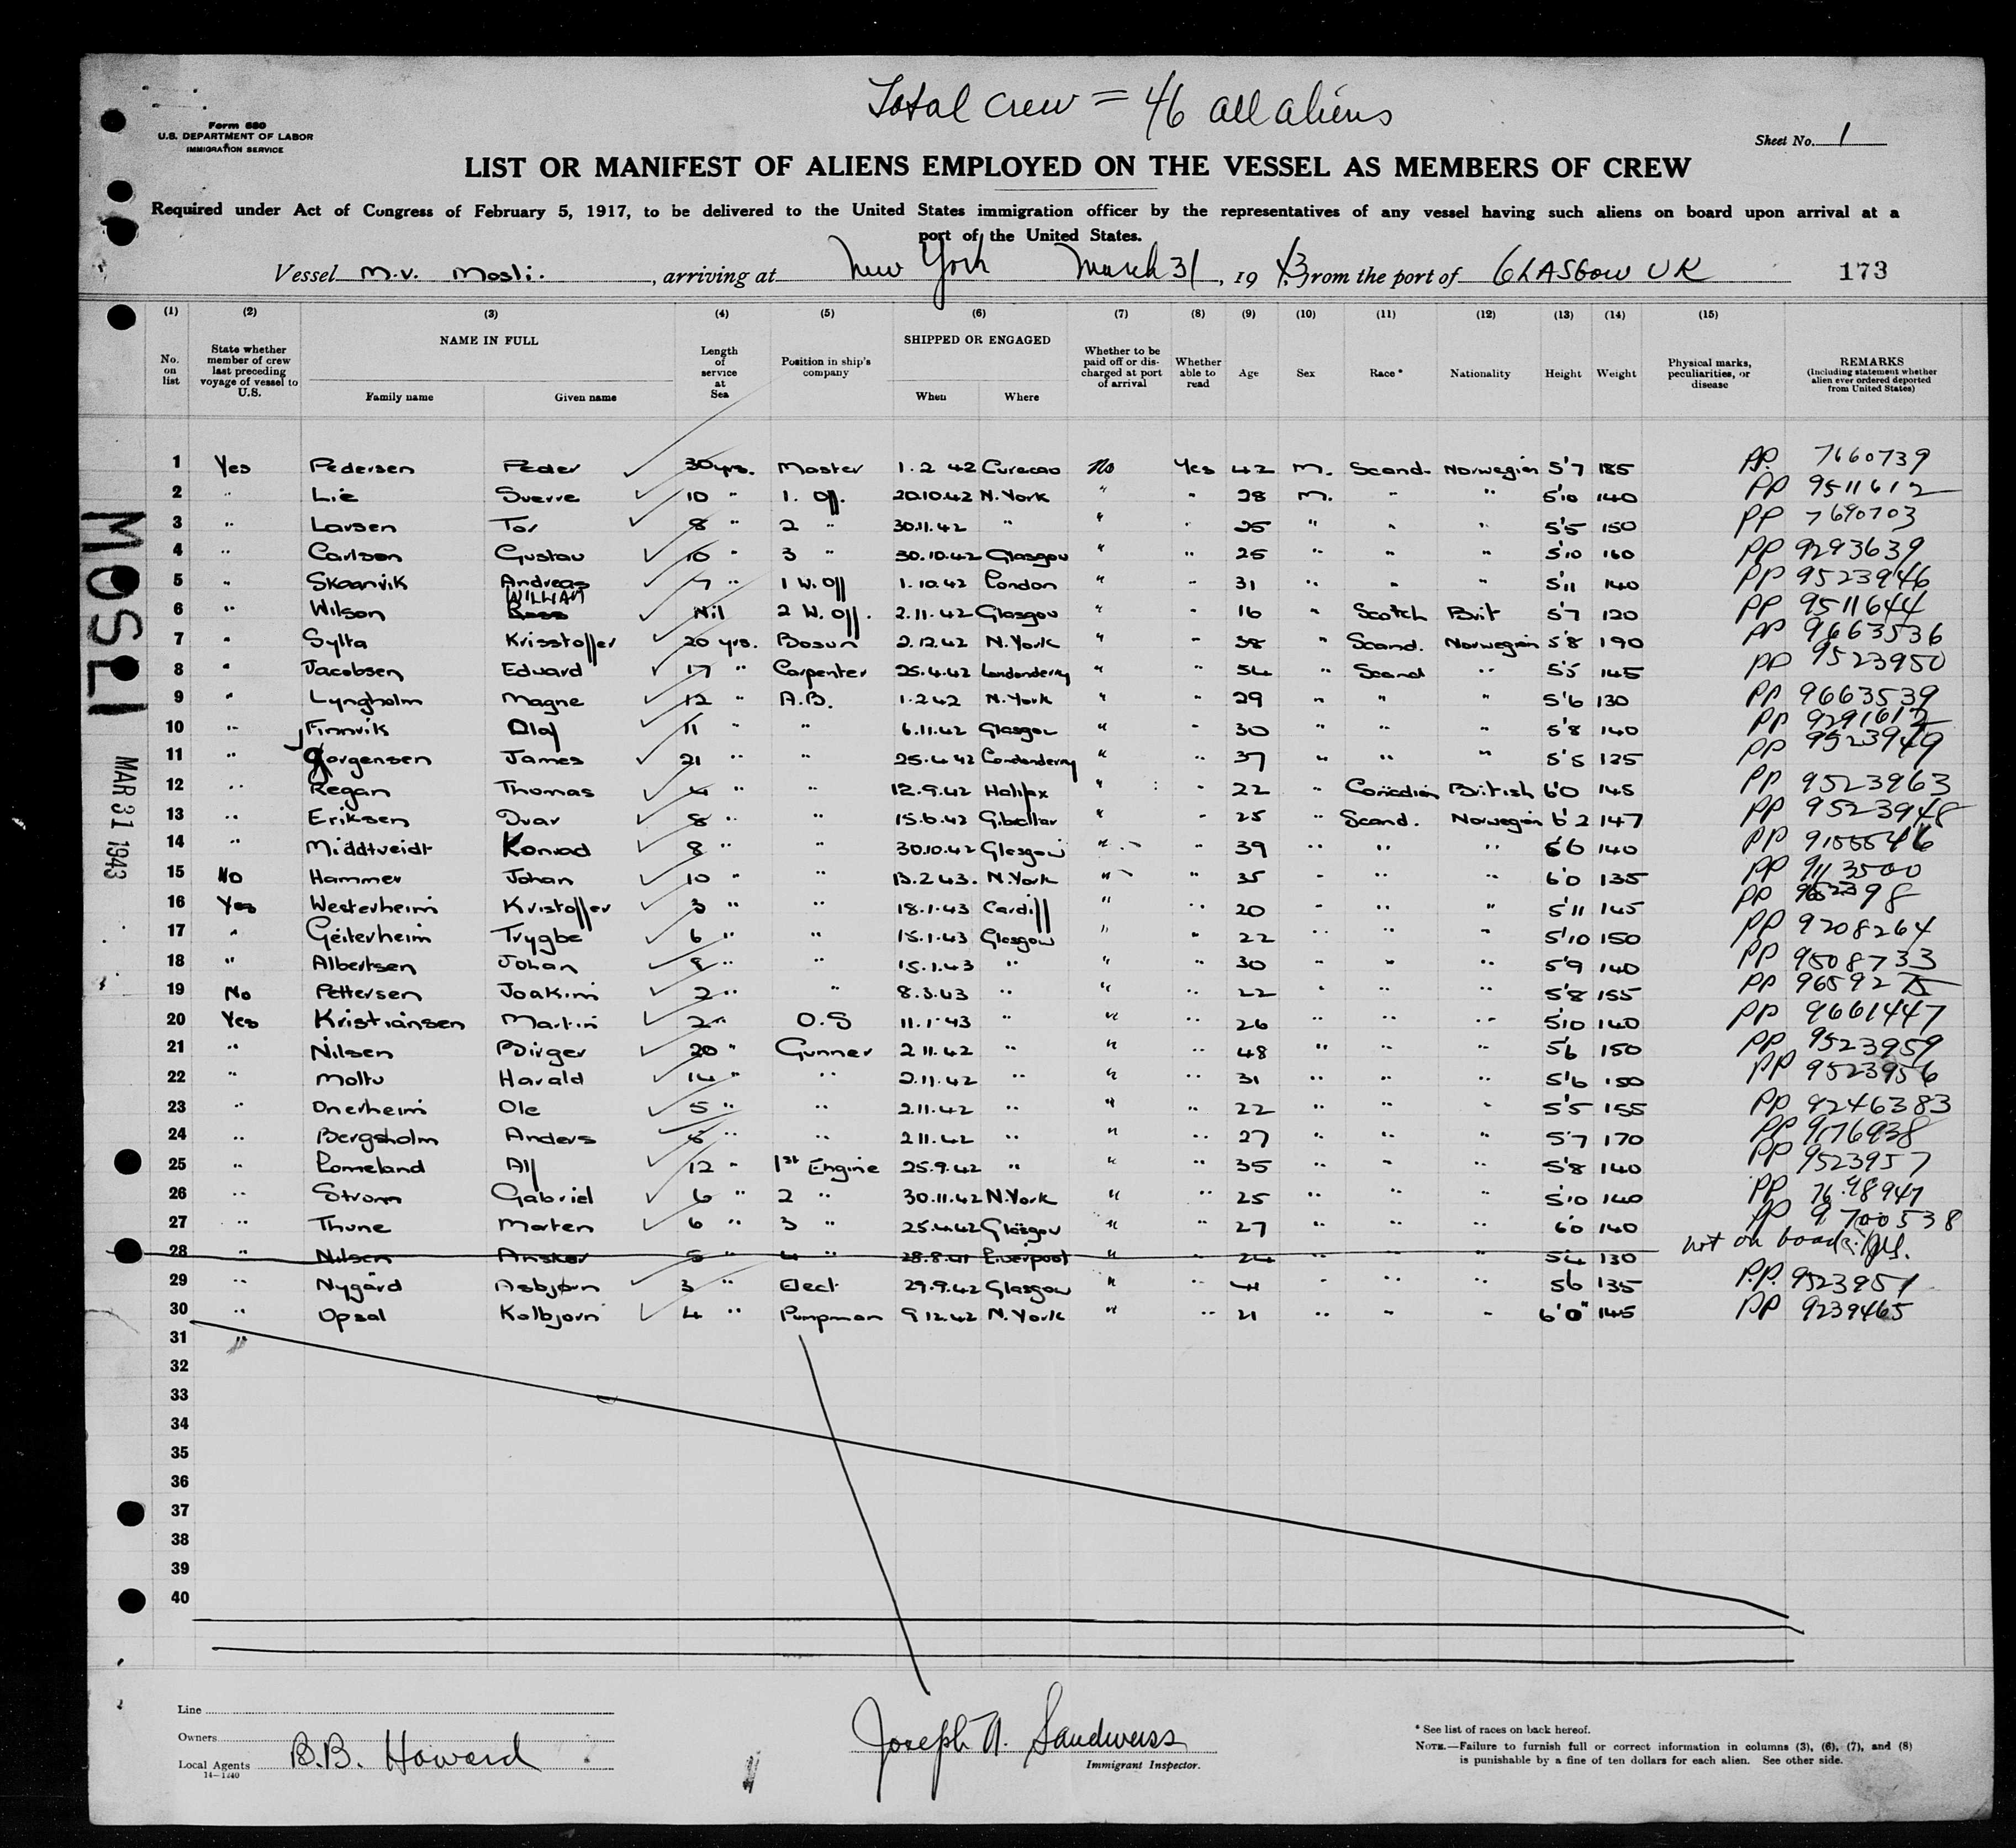 Total crew = 46 all aliens
Form 680
U.S. DEPARTMENT OF LABOR
IMMIGRATION SERVICE
Sheet No. 1
LIST OR MANIFEST OF ALIENS EMPLOYED ON THE VESSEL AS MEMBERS OF CREW
Required under Act of Congress of February 5, 1917, to be delivered to the United States immigration officer by the representatives of any vessel having such aliens on board upon arrival at a
port of the United States.
Vessel M.V. Mosli. , arriving at New York March 31 , 19 43, from the port of GLASGOW UK 173
(1) (2) (3) (4) (5) (6) (7) (8) (9) (10) (11) (12) (13) (14) (15)
No. on list State whether member of crew last preceding voyage of vessel to U.S. NAME IN FULL Family name Given name Length of service at Sea Position in ship's company SHIPPED OR ENGAGED When Where Whether to be paid off or discharged at port of arrival Whether able to read Age Sex Race* Nationality Height Weight Physical marks, peculiarities, or disease REMARKS (Including statement whether alien ever ordered deported from United States)
1 Yes Pedersen Peder 30 yrs. Master 1.2 42 Curacao No Yes 42 M. Scand. Norwegian 5'7 185 PP. 7660739
2 " Lie Sverre 10 " 1. Off. 20.10.42 N. York " " 28 M. " " 5'10 140 PP 9511612
3 " Larsen Tor 8 " 2 " 30.11.42 " " " 25 " " " 5'5 150 PP 7690703
4 " Carlsen Gustav 10 " 3 " 30.10.42 Glasgow " " 25 " " " 5'10 160 PP 9293639
5 " Skaanvik Andreas 7 " 1 W. Off 1.10.42 London " " 31 " " " 5'11 140 PP 9523946
6 " Wilson WILLIAM Ross Nil 2 W. Off. 2.11.42 Glasgow " " 16 " Scotch Brit 5'7 120 PP 9511644
7 " Sylta Kristoffer 20 yrs. Bosun 2.12.42 N. York " " 38 " Scand. Norwegian 5'8 190 PP 9663536
8 " Jacobsen Edward 17 " Carpenter 25.4.42 Londonderry " " 54 " Scand " 5'5 145 PP 9523950
9 " Lyngholm Magne 12 " A.B. 1.2 42 N. York " " 29 " " " 5'6 130 PP 9663539
10 " Finnvik Olaf 11 " " 6.11.42 Glasgow " " 30 " " " 5'8 140 PP 9291612
11 " Jorgensen James 21 " " 25.4 42 Londonderry " " 37 " " " 5'5 125 PP 9523949
12 " Regan Thomas 4 " " 12.9.42 Halifax " " 22 " Canadian British 6'0 145 PP 9523963
13 " Eriksen Ivar 8 " " 15.6.42 Gibraltar " " 25 " Scand. Norwegian 6'2 147 PP 9523948
14 " Middtveidt Konrad 8 " " 30.10.42 Glasgow " " 39 " " " 5'6 140 PP
15 No Hammer Johan 10 " " 13.2.43. N. York " " 35 " " " 6'0 135 PP 9113500
16 Yes Westerheim Kristoffer 3 " " 18.1.43 Cardiff " " 20 " " " 5'11 145 PP
17 " Geiterheim Trygbe 6 " " 15.1.43 Glasgow " " 22 " " " 5'10 150 PP 9208264
18 " Albertsen Johan 9 " " 15.1.43 " " " 30 " " " 5'9 140 PP 9508733
19 No Pettersen Joakim 2 " " 8.3.43 " " " 22 " " " 5'8 155 PP
20 Yes Kristiansen Martin 2 " O.S 11.1.43 " " " 26 " " " 5'10 140 PP 9661447
21 " Nilsen Birger 20 " Gunner 2 11.42 " " " 48 " " " 5'6 150 PP 9523959
22 " Moltu Harald 14 " " 2.11.42 " " " 31 " " " 5'6 150 PP 9523956
23 " Onerheim Ole 5 " " 2.11.42 " " " 22 " " " 5'5 155 PP 9246383
24 " Bergsholm Anders 6 " " 2 11.42 " " " 27 " " " 5'7 170 PP 9176938
25 " Lomeland Alf 12 " 1st Engine 25.9.42 " " " 35 " " " 5'8 140 PP 9523957
26 " Strom Gabriel 6 " 2 " 30.11.42 N. York " " 25 " " " 5'10 140 PP 7698947
27 " Thune Morten 6 " 3 " 25.4.42 Glasgow " " 27 " " " 6'0 140 PP 9700538
28 " Nilsen Ansker 5 " 4 " 28.8.41 Liverpool " " 24 " " " 5'4 130 not on board
29 " Nygård Asbjørn 3 " Elect 29.9.42 Glasgow " " 41 " " " 5'6 135 P.P. 9523951
30 " Opsal Kolbjorn 4 " Pumpman 9 12.42 N. York " " 21 " " " 6'0" 145 PP 9239465
31 "
32
33
34
35
36
37
38
39
40
MOSLI
MAR 31 1943
Line
Owners
Local Agents B.B. Howard
14-1240
Joseph A. Sandweiss
Immigrant Inspector.
* See list of races on back hereof.
NOTE.—Failure to furnish full or correct information in columns (3), (6), (7), and (8)
is punishable by a fine of ten dollars for each alien. See other side.